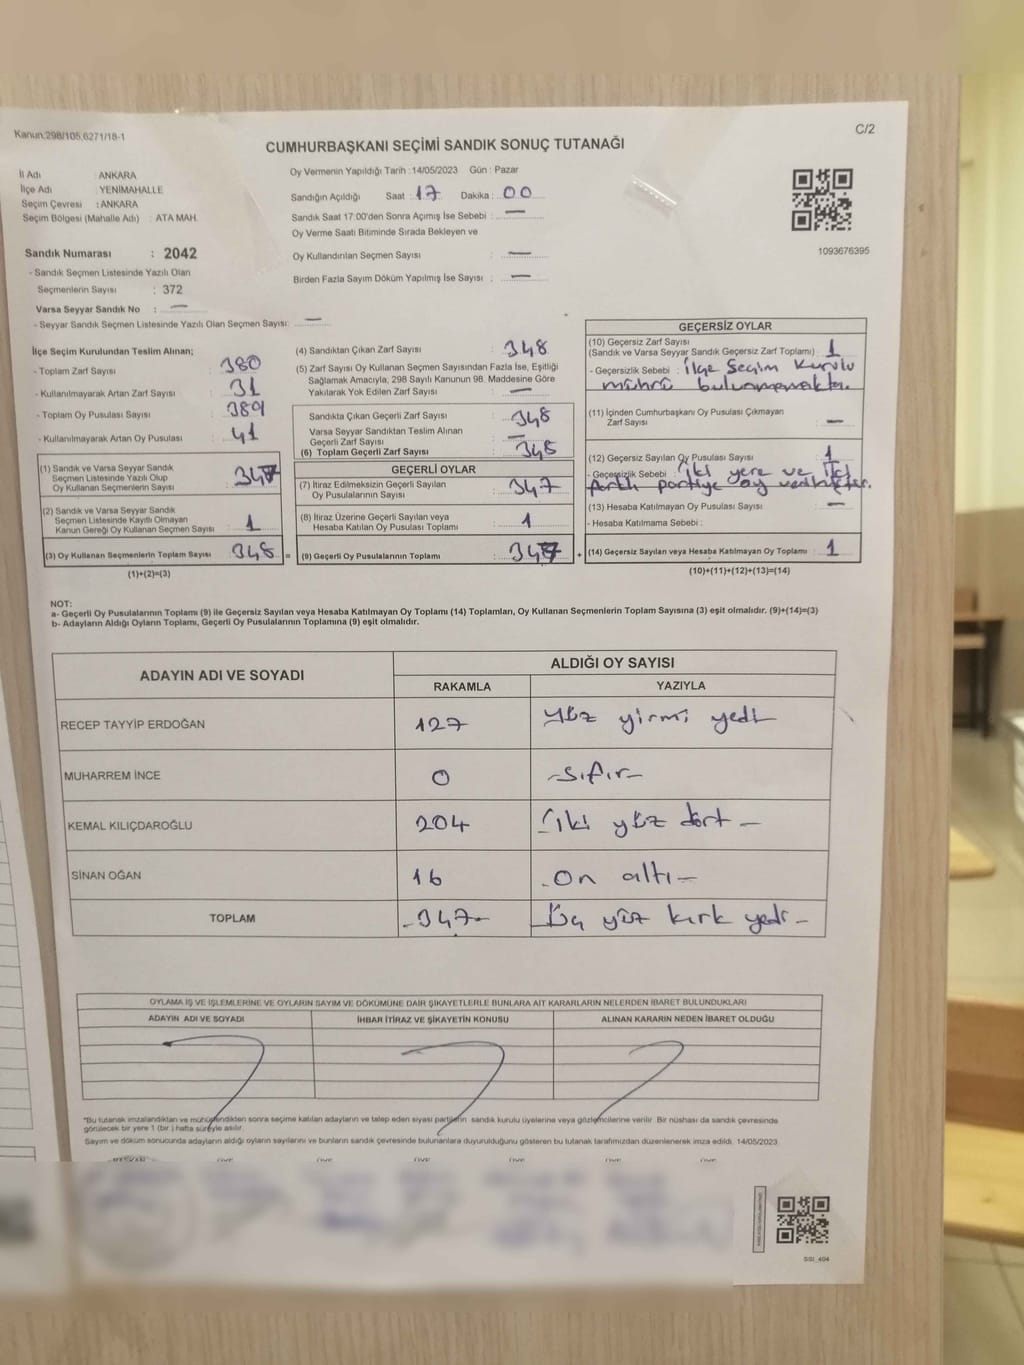 Kanun:298/105,6271/18-1
C/2
CUMHURBAŞKANI SEÇİMİ SANDIK SONUÇ TUTANAĞI
İl Adı : ANKARA
İlçe Adı : YENİMAHALLE
Seçim Çevresi : ANKARA
Seçim Bölgesi (Mahalle Adı) : ATA MAH.
Sandık Numarası : 2042
- Sandık Seçmen Listesinde Yazılı Olan
Seçmenlerin Sayısı : 372
Varsa Seyyar Sandık No : —
- Seyyar Sandık Seçmen Listesinde Yazılı Olan Seçmen Sayısı: —
Oy Vermenin Yapıldığı Tarih : 14/05/2023 Gün : Pazar
Sandığın Açıldığı Saat : 17 Dakika : 00
Sandık Saat 17:00'den Sonra Açımış İse Sebebi : —
Oy Verme Saati Bitiminde Sırada Bekleyen ve
Oy Kullandırılan Seçmen Sayısı : —
Birden Fazla Sayım Döküm Yapılmış İse Sayısı : —
1093676395
İlçe Seçim Kurulundan Teslim Alınan;
- Toplam Zarf Sayısı : 380
- Kullanılmayarak Artan Zarf Sayısı : 31
- Toplam Oy Pusulası Sayısı : 389
- Kullanılmayarak Artan Oy Pusulası : 41
(1) Sandık ve Varsa Seyyar Sandık
Seçmen Listesinde Yazılı Olup
Oy Kullanan Seçmenlerin Sayısı 347
(2) Sandık ve Varsa Seyyar Sandık
Seçmen Listesinde Kayıtlı Olmayan
Kanun Gereği Oy Kullanan Seçmen Sayısı 1
(3) Oy Kullanan Seçmenlerin Toplam Sayısı 348 =
(1)+(2)=(3)
(4) Sandıktan Çıkan Zarf Sayısı : 348
(5) Zarf Sayısı Oy Kullanan Seçmen Sayısından Fazla İse, Eşitliği
Sağlamak Amacıyla, 298 Sayılı Kanunun 98. Maddesine Göre
Yakılarak Yok Edilen Zarf Sayısı : —
Sandıkta Çıkan Geçerli Zarf Sayısı : 348
Varsa Seyyar Sandıktan Teslim Alınan
Geçerli Zarf Sayısı : —
(6) Toplam Geçerli Zarf Sayısı : 348
GEÇERLİ OYLAR
(7) İtiraz Edilmeksizin Geçerli Sayılan
Oy Pusulalarının Sayısı : 347
(8) İtiraz Üzerine Geçerli Sayılan veya
Hesaba Katılan Oy Pusulası Toplamı : 1
(9) Geçerli Oy Pusulalarının Toplamı : 347 +
GEÇERSİZ OYLAR
(10) Geçersiz Zarf Sayısı
(Sandık ve Varsa Seyyar Sandık Geçersiz Zarf Toplamı) : 1
- Geçersizlik Sebebi : ilçe Seçim Kurulu
mührü bulunmamakta.
(11) İçinden Cumhurbaşkanı Oy Pusulası Çıkmayan
Zarf Sayısı : —
(12) Geçersiz Sayılan Oy Pusulası Sayısı : 1
- Geçersizlik Sebebi : iki yere ve
partiye oy verilmiştir.
(13) Hesaba Katılmayan Oy Pusulası Sayısı : —
- Hesaba Katılmama Sebebi :
(14) Geçersiz Sayılan veya Hesaba Katılmayan Oy Toplamı : 1
(10)+(11)+(12)+(13)=(14)
NOT:
a- Geçerli Oy Pusulalarının Toplamı (9) ile Geçersiz Sayılan veya Hesaba Katılmayan Oy Toplamı (14) Toplamları, Oy Kullanan Seçmenlerin Toplam Sayısına (3) eşit olmalıdır. (9)+(14)=(3)
b- Adayların Aldığı Oyların Toplamı, Geçerli Oy Pusulalarının Toplamına (9) eşit olmalıdır.
ADAYIN ADI VE SOYADI
ALDIĞI OY SAYISI
RAKAMLA YAZIYLA
RECEP TAYYİP ERDOĞAN 127 Yüz yirmi yedi
MUHARREM İNCE 0 -sıfır-
KEMAL KILIÇDAROĞLU 204 iki yüz dört -
SİNAN OĞAN 16 on altı -
TOPLAM -347- Üç yüz kırk yedi -
OYLAMA İŞ VE İŞLEMLERİNE VE OYLARIN SAYIM VE DÖKÜMÜNE DAİR ŞİKAYETLERLE BUNLARA AİT KARARLARIN NELERDEN İBARET BULUNDUKLARI
ADAYIN ADI VE SOYADI İHBAR İTİRAZ VE ŞİKAYETİN KONUSU ALINAN KARARIN NEDEN İBARET OLDUĞU
*Bu tutanak imzalandıktan ve mühürlendikten sonra seçime katılan adayların ve talep eden siyasi partilerin sandık kurulu üyelerine veya gözlemcilerine verilir. Bir nüshası da sandık çevresinde
görülecek bir yere 1 (bir ) hafta süreyle asılır.
Sayım ve döküm sonucunda adayların aldığı oyların sayılarını ve bunların sandık çevresinde bulunanlara duyurulduğunu gösteren bu tutanak tarafımızdan düzenlenerek imza edildi. 14/05/2023
SSI_404